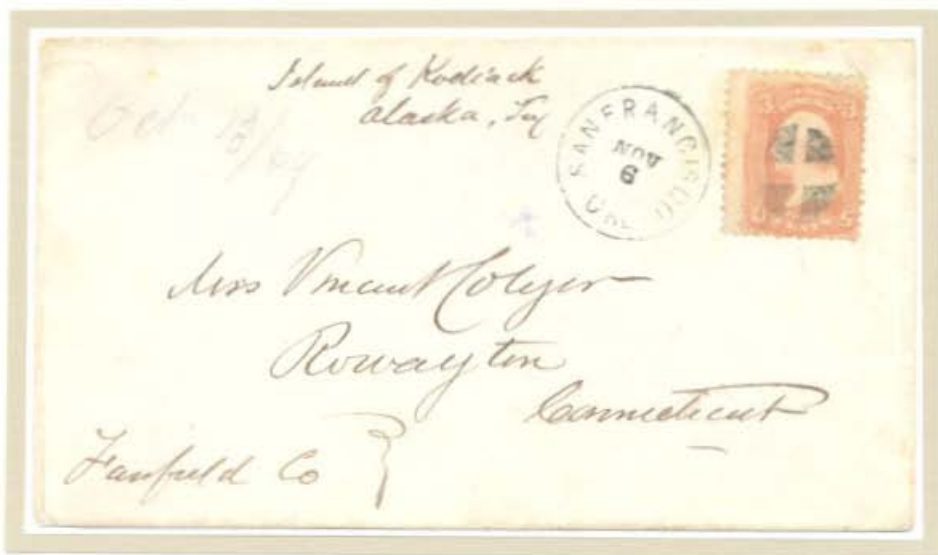 Island of Kodiack
Alaska, Ty
Oct 13/69
SAN FRANCISCO
NOV
6
CAL
3 3
Mrs Vincent Colyer
Rowayton
Connecticut
Fairfield Co